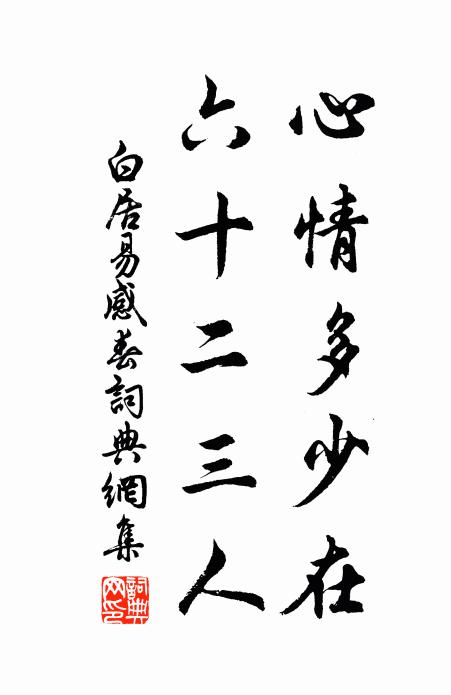 心情多少在
六十二三人
白居易感春詞典網集
詞典網印